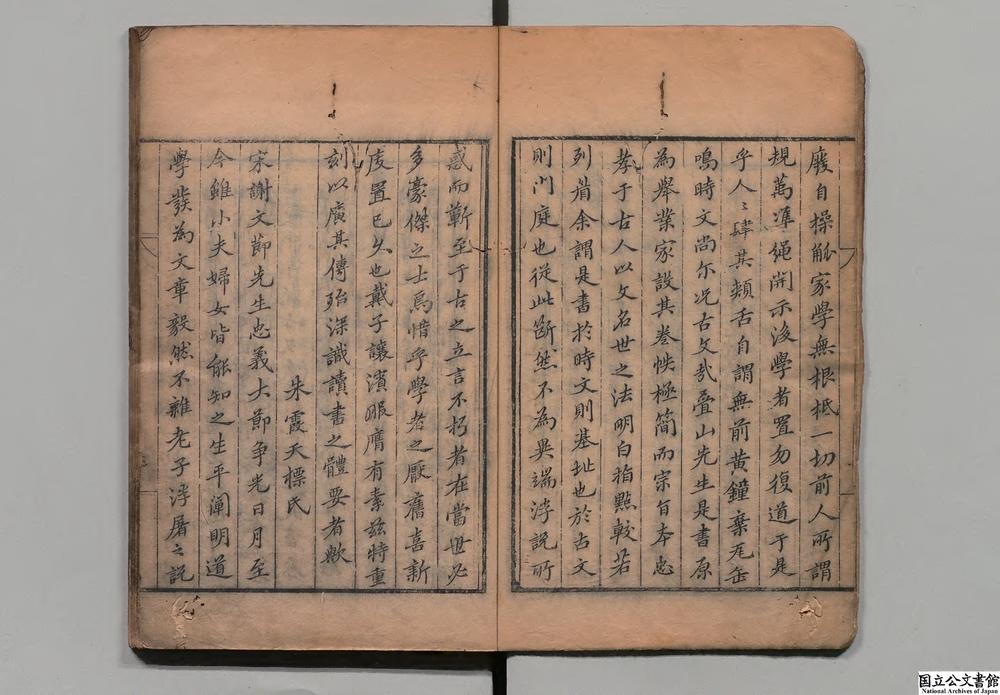 廢自操觚家學無根柢一切前人所謂
規萬準繩開示後學者置勿復道于是
乎人〻肆其頰舌自謂無前黃鐘棄瓦缶
鳴時文尚尔况古文㢤疊山先生是書原
為舉業家設其卷帙極簡而宗旨本忠
孝于古人以文名世之法明白指點較若
列眉余謂是書於時文則基址也於古文
則門庭也從此斷然不為異端浮説所
惑而蘄至于古之立言不朽者在當世必
多豪傑之士焉惜乎學者之厭舊喜新
庋置已久也戴子讓濱服膺有素玆特重
刻以廣其傳殆深識讀書之體要者歟
朱霞天標氏
宋謝文節先生忠義大節争光日月至
今雖小夫婦女皆能知之生平闡明道
學發為文章毅然不雜老子浮屠之説
国立公文書館
National Archives of Japan